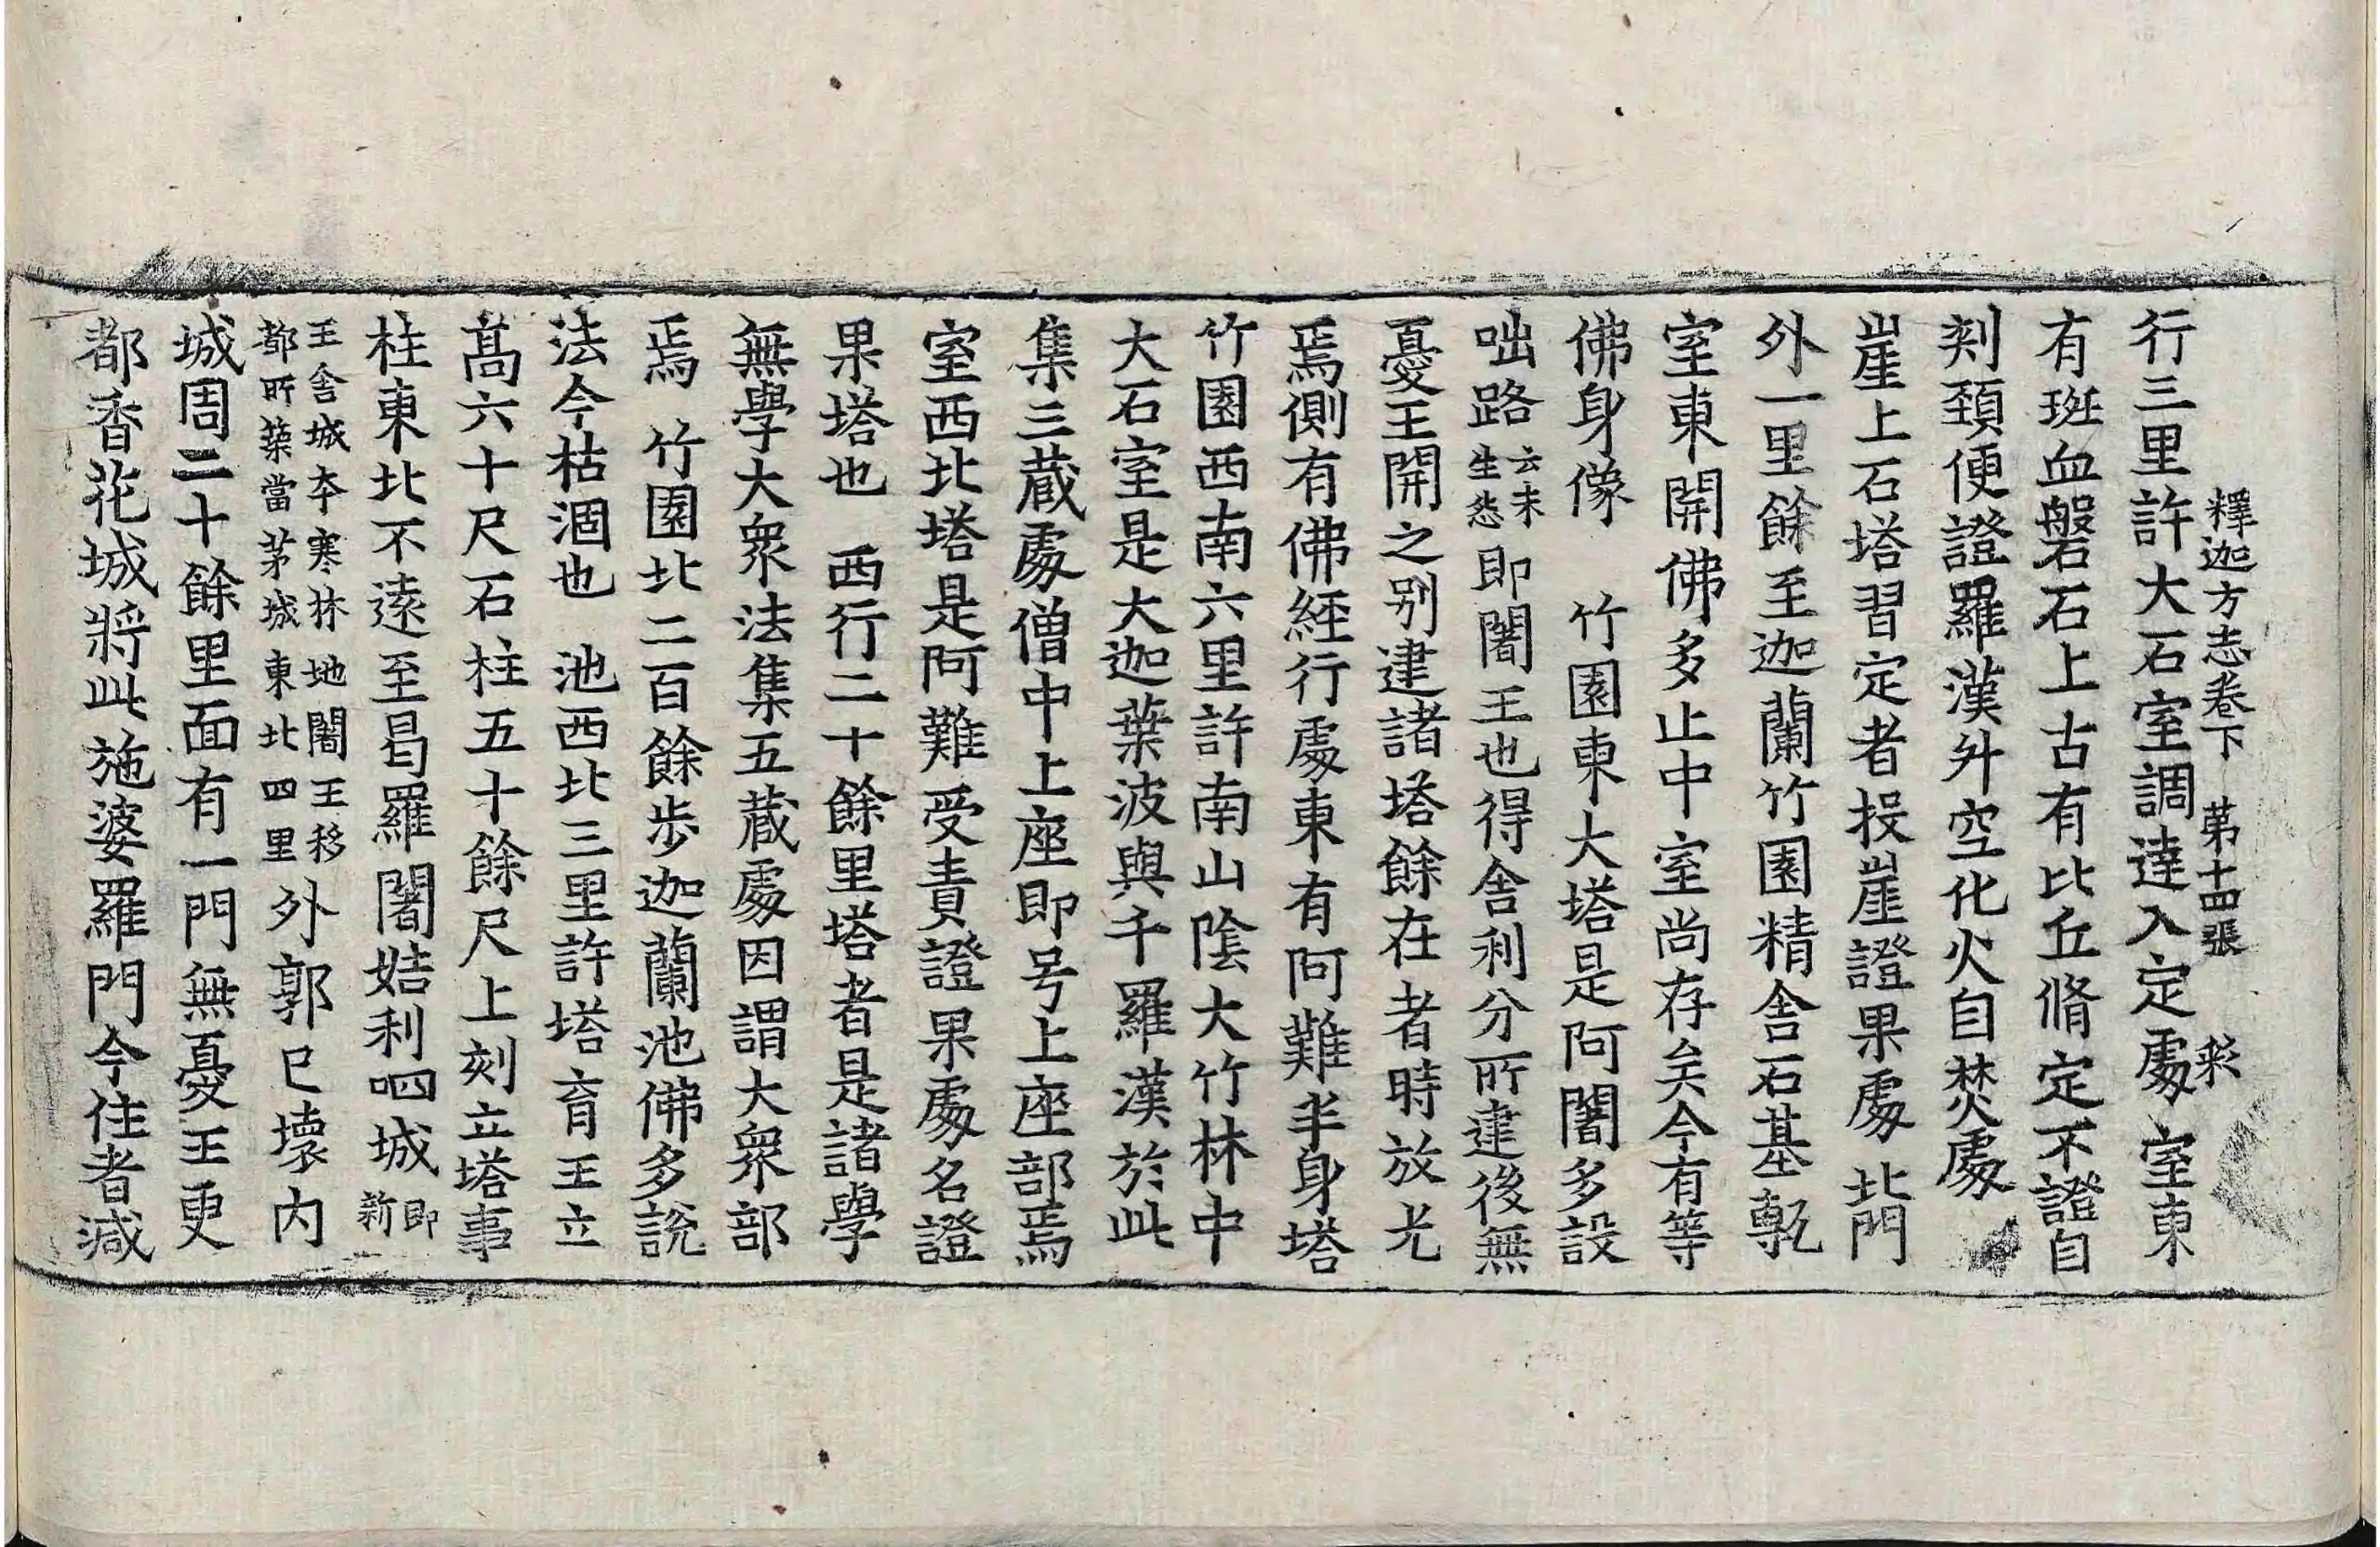 釋迦方志卷下　第十四張　㔟
行三里許大石室調達入定處　室東
有斑血盤石上古有比丘脩定不證自
刾頚便證羅漢升空化火自焚處
崖上石塔習定者投崖證果處　北門
外一里餘至迦蘭竹園精舍石基甎
室東開佛多止中室尚存矣今有等
佛身像　竹園東大塔是阿闍多設
咄路云未生怨即闍王也得舍利分所建後無
憂王開之別建諸塔餘在者時放光
焉側有佛經行處東有阿難半身塔
竹園西南六里許南山陰大竹林中
大石室是大迦葉波與千羅漢於此
集三蔵處僧中上座即号上座部焉
室西北塔是阿難受責證果處名證
果塔也　西行二十餘里塔者是諸學
無學大衆法集五蔵處因謂大衆部
焉　竹園北二百餘步迦蘭池佛多說
法今枯涸也　池西北三里許塔育王立
髙六十尺石柱五十餘尺上刻立塔事
柱東北不遠至曷羅闍姞利呬城即新
王舍城本寒林地闍王移都所築當茅城東北四里外郭已壞内
城周二十餘里面有一門無憂王更
都香花城將此施婆羅門今住者減